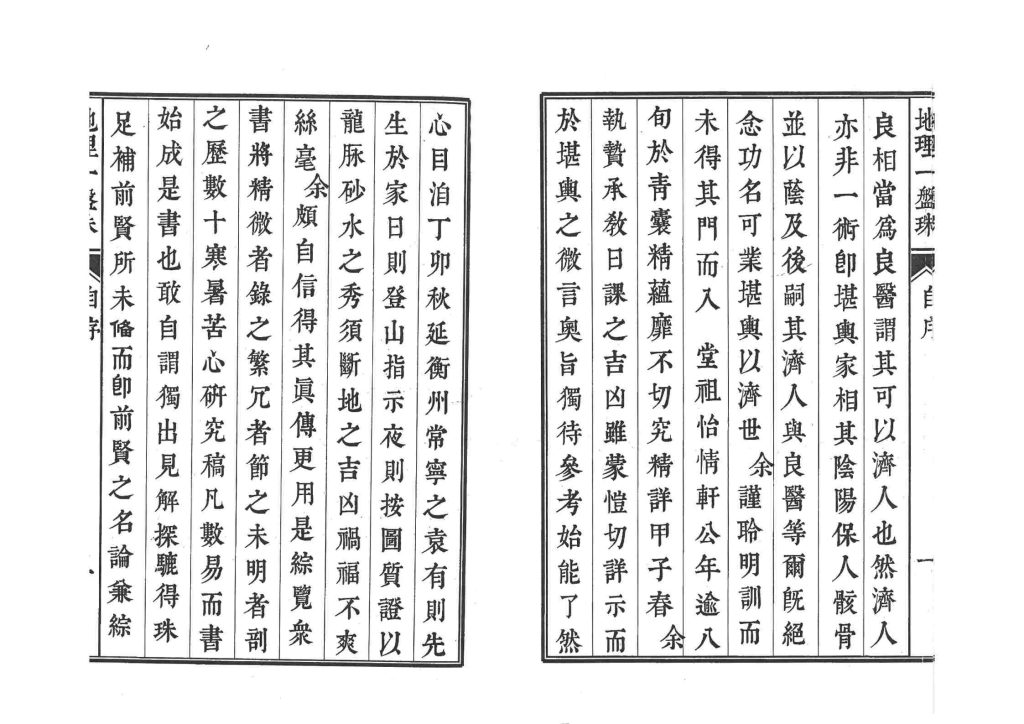 地理一盤珠
自序
一
良相當爲良醫謂其可以濟人也然濟人
亦非一術卽堪輿家相其陰陽保人骸骨
並以蔭及後嗣其濟人與良醫等爾旣絕
念功名可業堪輿以濟世余謹聆明訓而
未得其門而入 堂祖怡情軒公年逾八
旬於靑囊精蘊靡不切究精詳甲子春余
執贄承敎日課之吉凶雖蒙愷切詳示而
於堪輿之微言奥旨獨待參考始能了然
心目洎丁卯秋延衡州常寧之袁有則先
生於家日則登山指示夜則按圖質證以
龍脈砂水之秀須斷地之吉凶禍福不爽
絲毫余頗自信得其眞傳更用是綜覽衆
書將精微者錄之繁冗者節之未明者剖
之歷數十寒暑苦心硏究稿凡數易而書
始成是書也敢自謂獨出見解探驪得珠
足補前賢所未俻而卽前賢之名論兼綜
地理一盤珠
自序